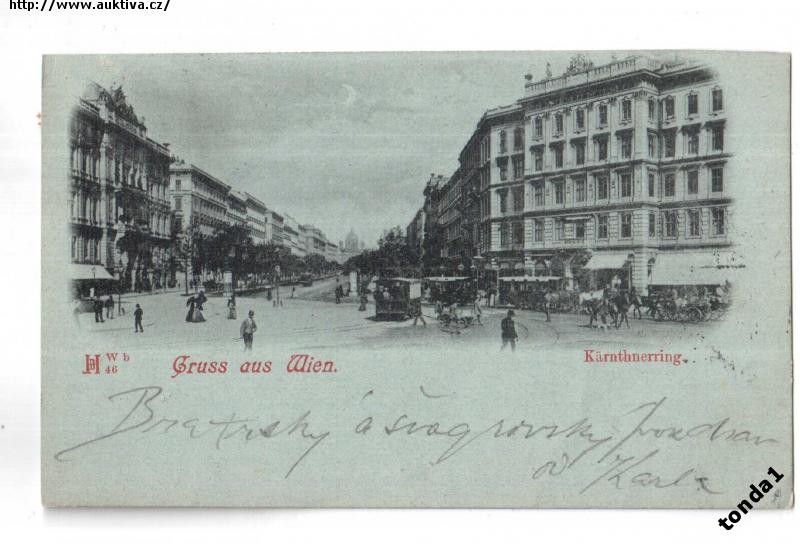 http://www.auktiva.cz/
W b
46
Gruss aus Wien.
Kärnthnerring.
Bratrský a švagrovský
od Karla
tonda1